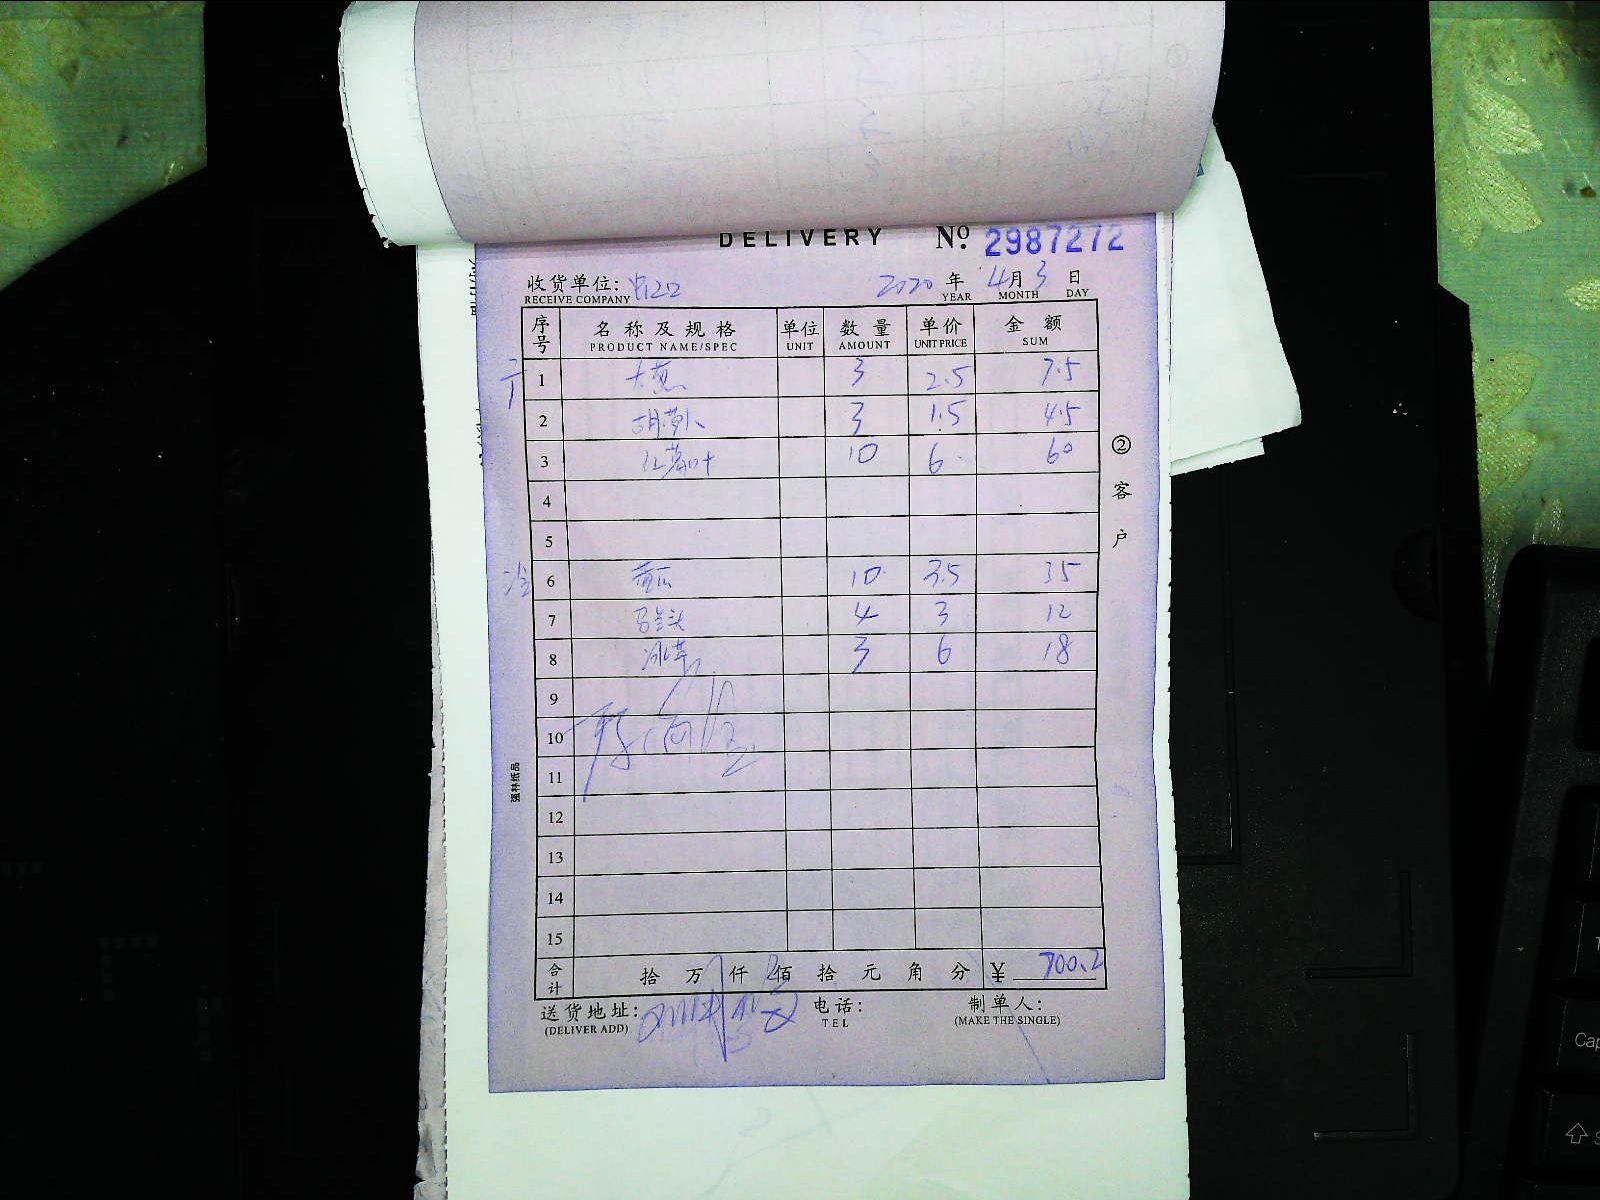 DELIVERY № 2987272
收货单位: 2020 年 4 月 3 日
RECEIVE COMPANY YEAR MONTH DAY
序号 名称及规格 单位 数量 单价 金额
PRODUCT NAME/SPEC UNIT AMOUNT UNIT PRICE SUM
1 大葱 3 2.5 7.5
2 胡萝卜 3 1.5 4.5
3 10 6 60
4
5
冷 6 黄瓜 10 3.5 35
7 4 3 12
8 冰草 3 6 18
9
10
11
12
13
14
15
合计 拾 万 仟 佰 拾 元 角 分 ¥ 700.2
送货地址: 电话: 制单人:
(DELIVER ADD) TEL (MAKE THE SINGLE)
②客户
强林纸品
Cap